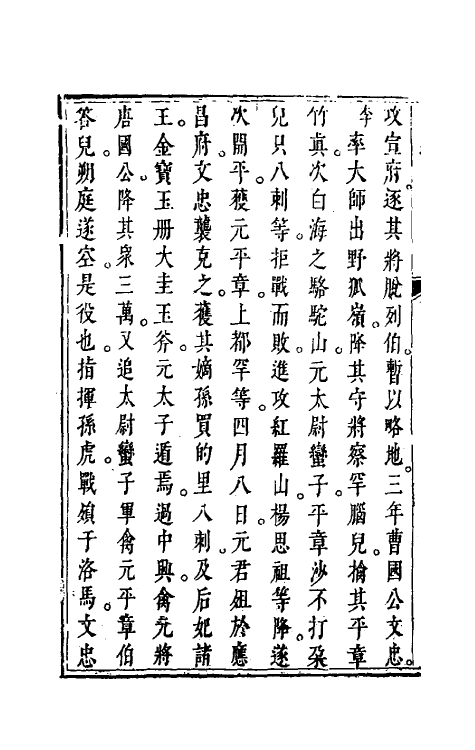 攻宣府。逐其將脫列伯。暫以略地。三年曹國公文忠。
李率大師出野狐嶺。降其守將察罕腦兒。擒其平章
竹眞。次白海之駱駝山。元太尉蠻子。平章沙不打朶
兒只八剌等。拒戰而敗。進攻紅羅山。楊思祖等降。遂
次開平。穫元平章上都罕等。四月八日。元君殂於應
昌府。文忠襲克之。獲其嫡孫買的里八剌。及后妃諸
王。金寶玉册大圭玉斧。元太子遁焉。過中興。禽元將
唐國公。降其衆三萬。又追太尉蠻子軍。禽元平章伯
答兒。朔庭遂空。是役也。指揮孫虎。戰殞于洛馬。文忠